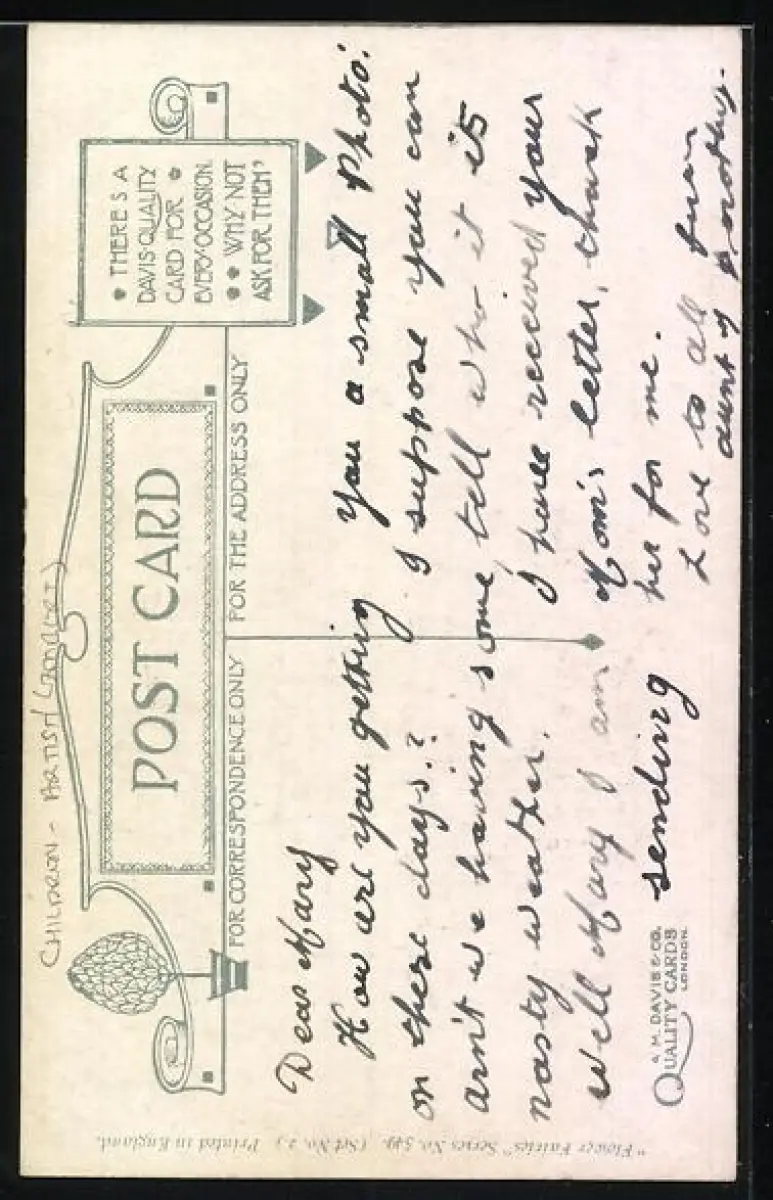 CHILDREN - ARTIST
POST CARD
• THERE'S A
DAVIS-QUALITY
CARD FOR •
EVERY-OCCASION.
• • WHY NOT
ASK FOR THEM?
FOR CORRESPONDENCE ONLY
FOR THE ADDRESS ONLY
Dear Mary
How are you getting
on these days.?
arn't we having some
nasty weather.
well Mary I am
sending
you a small Photo.
I suppose you can
tell who it is
I have received your
Mom's letter, thank
her for me.
Love to all from
aunt
A. M. DAVIS & CO.
QUALITY CARDS
LONDON.
"Flower Fairies" Series No. 549. (Set No. 2.) Printed in England.